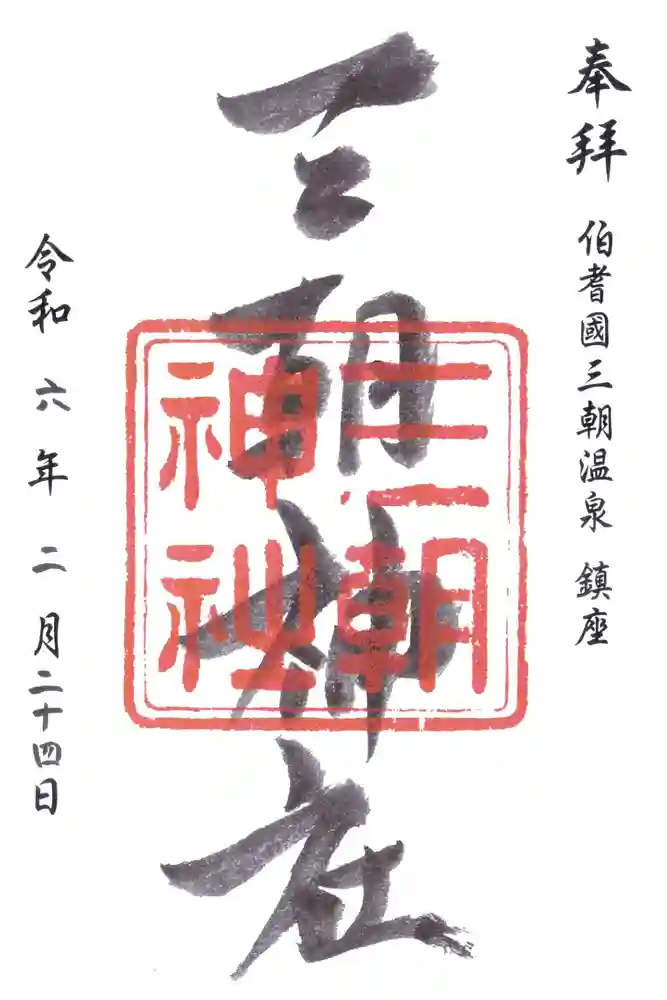 奉拝
伯耆國三朝温泉 鎮座
三朝神社
三朝
神社
令和 六年 二月二十四日